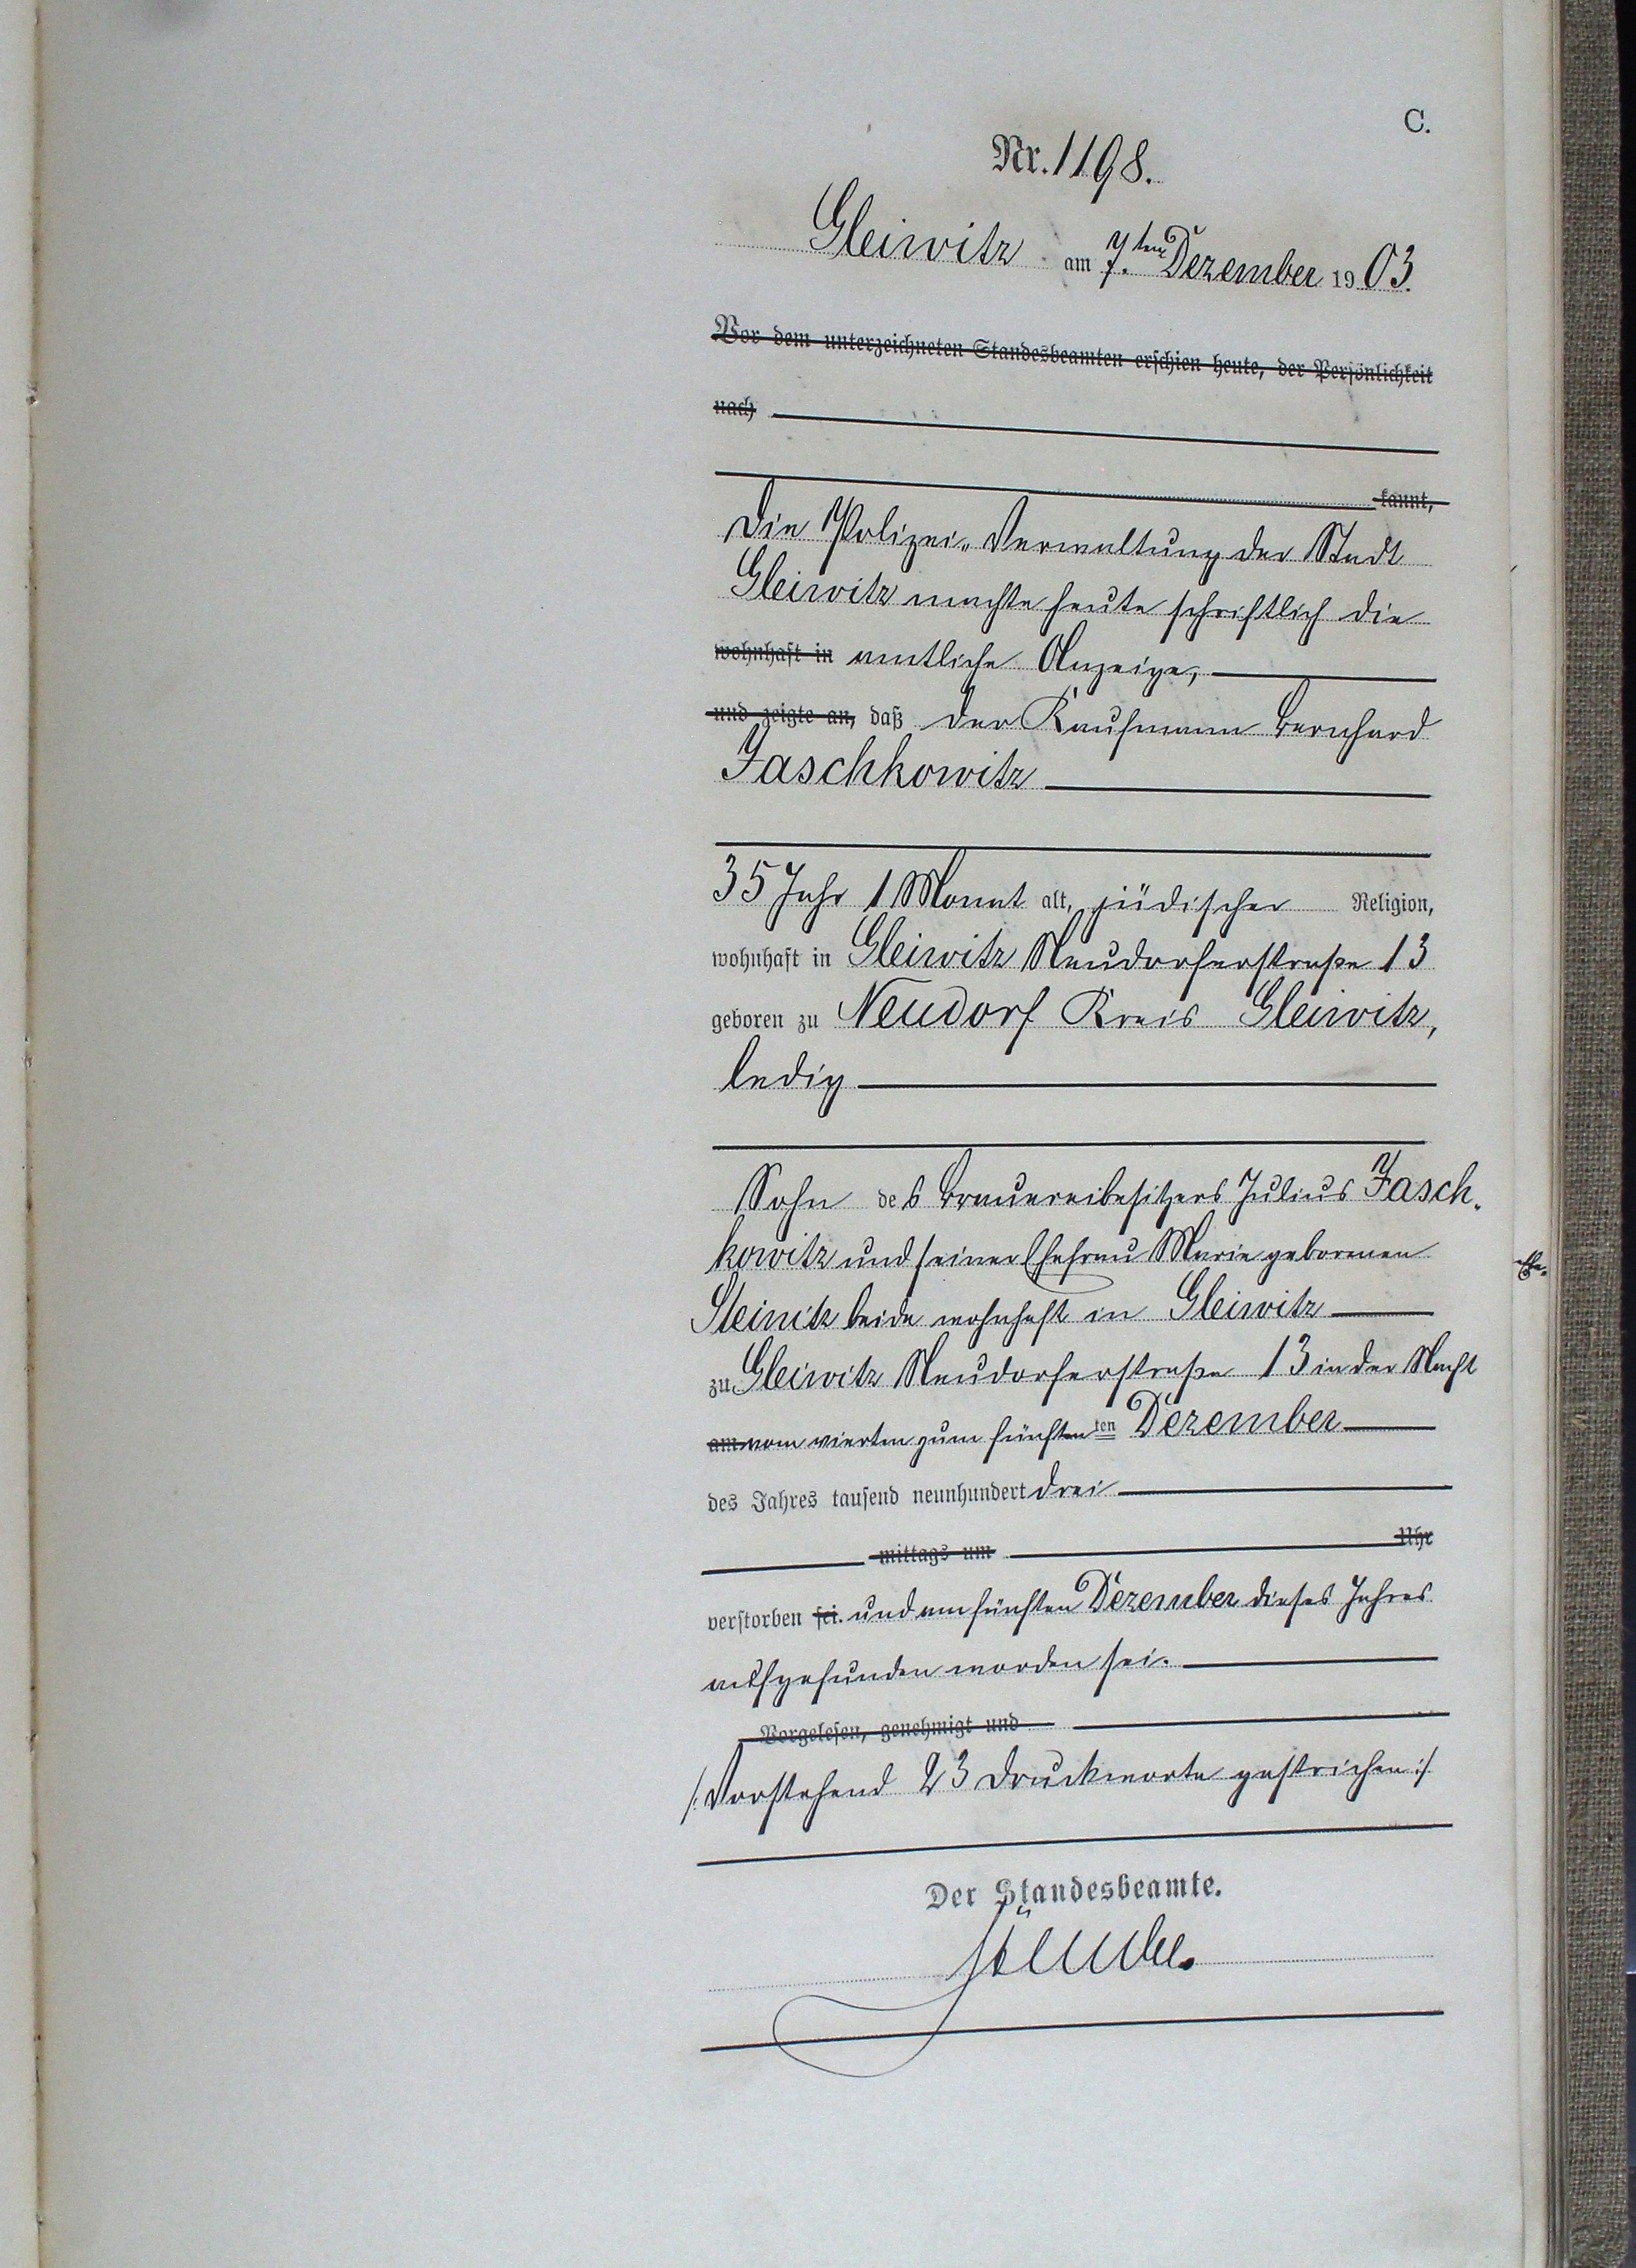 C.
Nr. 1198.
Gleiwitz am 7.ten Dezember 1903.
Vor dem unterzeichneten Standesbeamten erschien heute, der Persönlichkeit
nach
kannt,
Die Polizei-Verwaltung der Stadt
Gleiwitz machte heute schriftlich die
wohnhaft in amtliche Anzeige,
und zeigte an, daß der Kaufmann Bernhard
Jaschkowitz
35 Jahr 1 Monat alt, jüdischer Religion,
wohnhaft in Gleiwitz Neudorferstraße 13
geboren zu Neudorf Kreis Gleiwitz,
ledig
Sohn des Brauereibesitzers Julius Jasch-
kowitz und seiner Ehefrau Marie geborenen
Steinitz beide wohnhaft in Gleiwitz
zu Gleiwitz Neudorferstraße 13 in der Nacht
am vom vierten zum fünften ten Dezember
des Jahres tausend neunhundert drei
mittags um Uhr
verstorben sei. und am fünften Dezember dieses Jahres
aufgefunden worden sei.
Vorgelesen, genehmigt und
/: Vorstehend 23 Druckworte gestrichen :/
Der Standesbeamte.